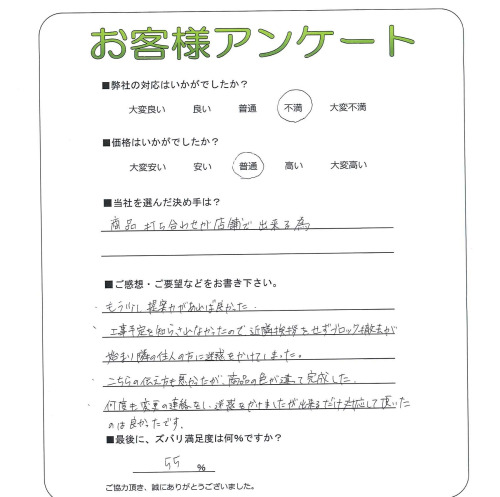 お客様アンケート
■弊社の対応はいかがでしたか？
大変良い 良い 普通 不満 大変不満
■価格はいかがでしたか？
大変安い 安い 普通 高い 大変高い
■当社を選んだ決め手は？
商品 打ち合わせが店舗で出来る為
■ご感想・ご要望などをお書き下さい。
・もう少し提案力があれば良かった.
・工事予定を知らされなかったので近隣挨拶をせずブロック撤去が
始まり隣の住人の方に迷惑をかけてしまった。
・こちらの伝え方も悪かったが、商品の色が違って完成した.
・何度も変更の連絡をし、迷惑をかけましたが出来るだけ対応して頂いた
のは良かったです。
■最後に、ズバリ満足度は何％ですか？
55 %
ご協力頂き、誠にありがとうございました。